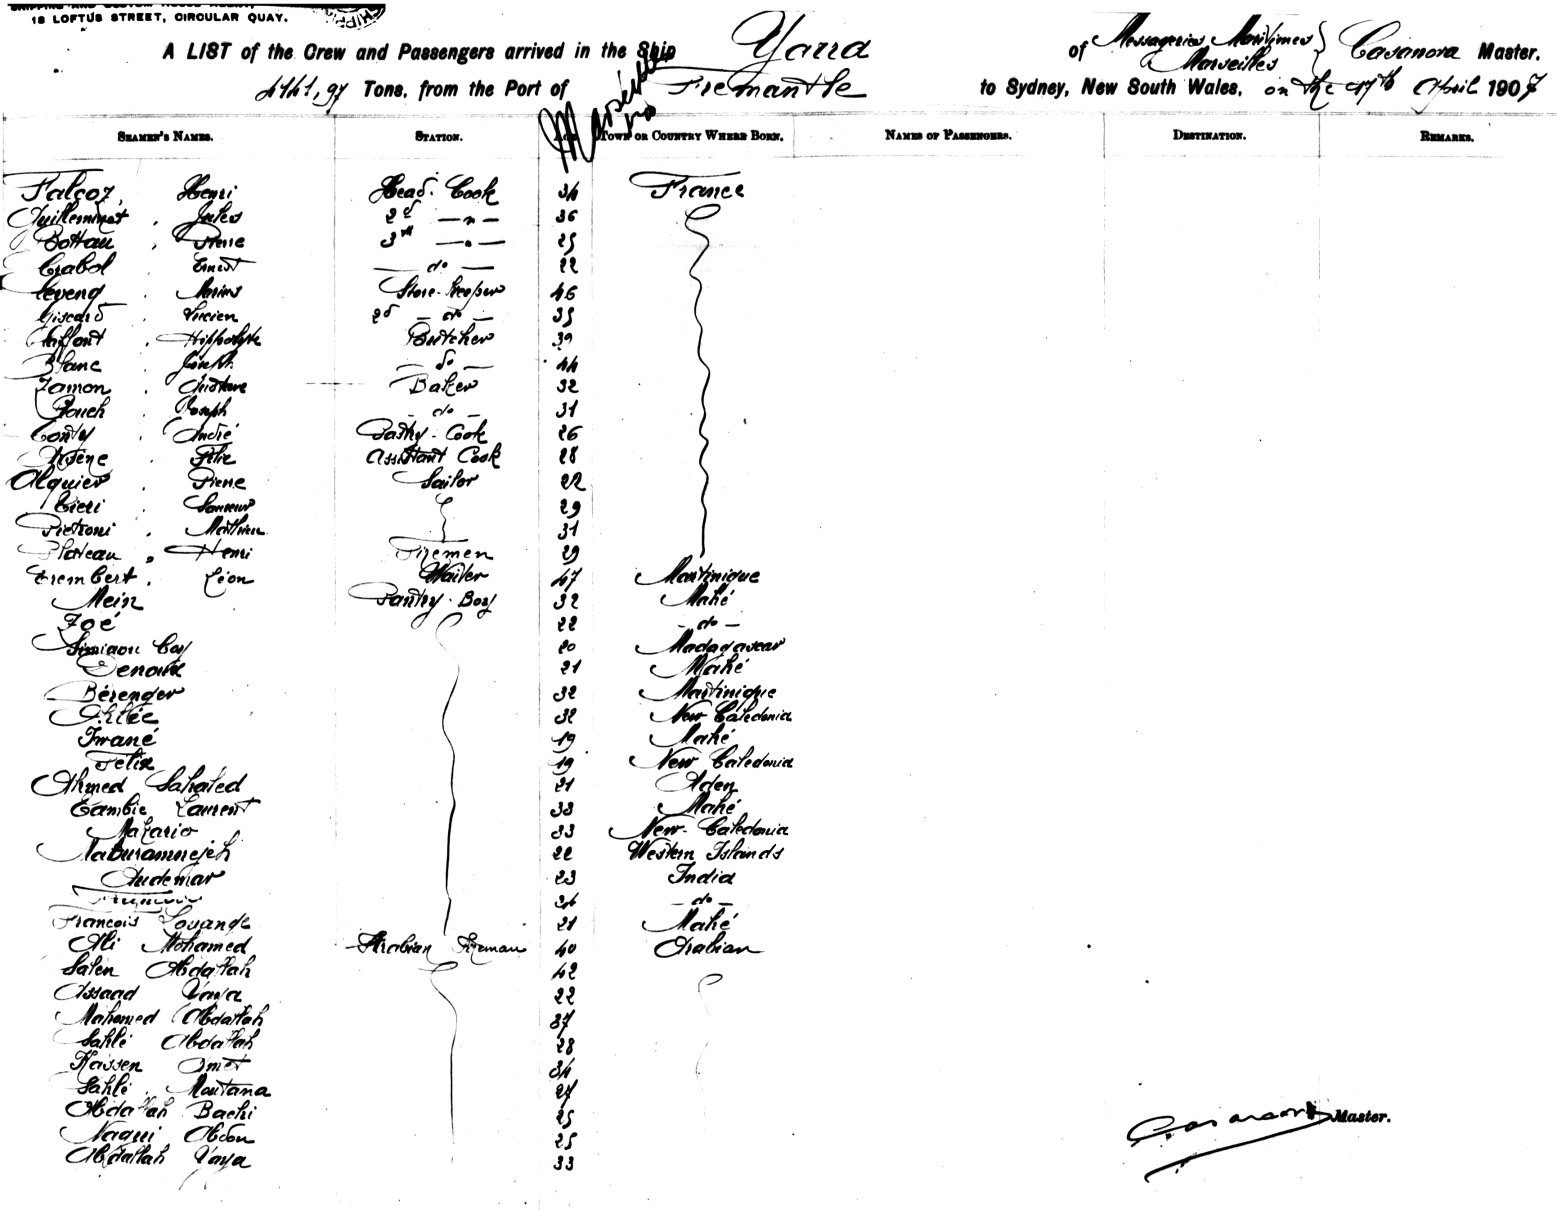 18 LOFTUS STREET, CIRCULAR QUAY.
A LIST of the Crew and Passengers arrived in the Ship Yarra of Messageries Maritimes Marseilles } Casanova Master.
4141,97 Tons, from the Port of Marseilles Fremantle to Sydney, New South Wales, on the 17th April 1907
SEAMEN'S NAMES. STATION. TOWN OR COUNTRY WHERE BORN. NAMES OF PASSENGERS. DESTINATION. REMARKS.
Falcoz, Henri Head Cook 34 France
Guilleminot, Jules 2d —"— 36
Bottau, Pierre 3rd —"— 25
Crabol, Ernest — do — 22
Marius Store-Keeper 46
Giscard, Lucien 2d — do — 35
Laffont, Hippolyte Butcher 39
Blanc, Joseph — do — 44
Zamon, Gustave Baker 32
Rouch, Joseph — do — 31
Conty, André Pastry-Cook 26
Arsène, Félix Assistant Cook 28
Alquier, Pierre Sailor 22
Cieri, Sauveur 29
Pietroni, Mathieu 31
Plateau, Henri Firemen 29
Erembert, Léon Waiter 47 Martinique
Mein Pantry-Boy 32 Mahé
Zoé 22 — do —
Simiaon Coy 20 Madagascar
Denoux 21 Mahé
Bérenger 32 Martinique
32 New Caledonia
Iwané 19 Mahé
Félix 19 New Caledonia
Ahmed Sahaled 21 Aden
Cambie Laurent 33 Mahé
Makario 33 New-Caledonia
Naburamnejeh 22 Western Islands
Audemar 23 India
24 — do —
Francois Louange 21 Mahé
Ali Mohamed Arabian Fireman 40 Arabian
Salen Abdallah 42
Assaad Yaya 22
Mahomed Abdallah 37
Sahlé Abdallah 28
Hassen Omet 34
Sahlé Montana 27
Abdallah Bachi 25
Nagui Abdou 25
Abdallah Yaya 33
Casanova Master.